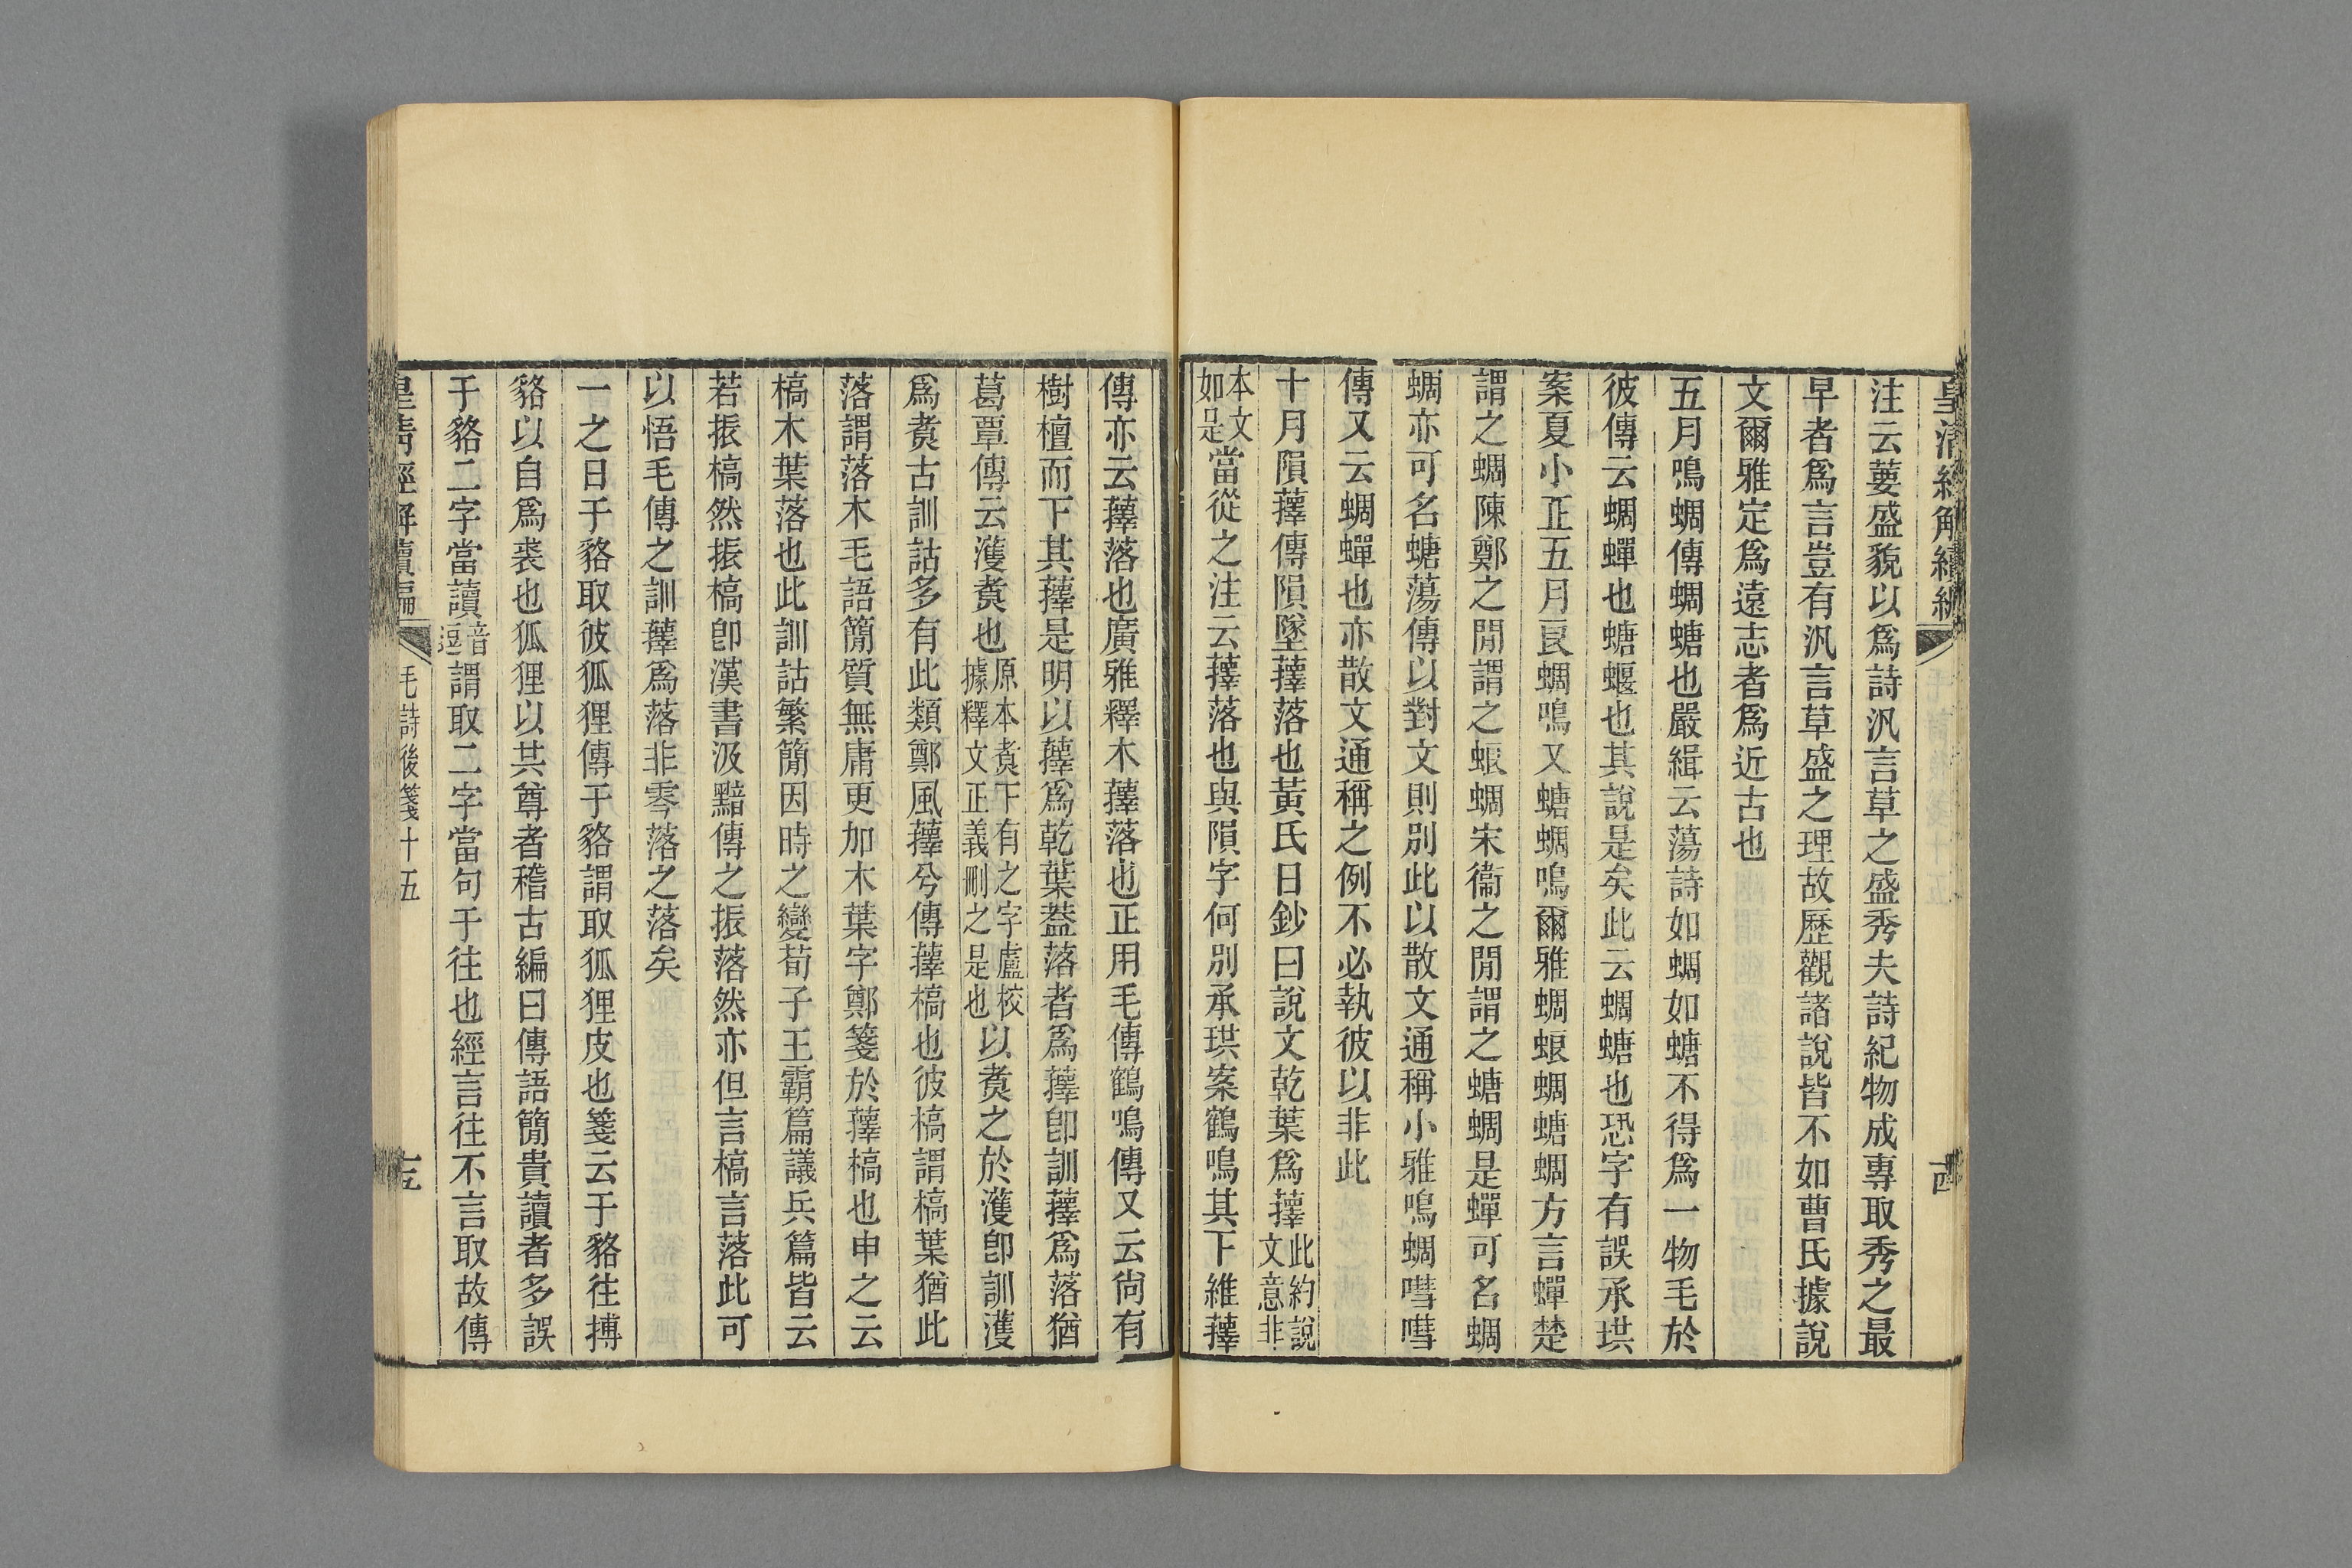 皇清經解續編
注云葽盛貌以爲詩汎言草之盛秀夫詩紀物成專取秀之最
早者爲言豈有汎言草盛之理故歷觀諸說皆不如曹氏據說
文爾雅定爲遠志者爲近古也
五月鳴蜩傳蜩螗也嚴緝云蕩詩如蜩如螗不得爲一物毛於
彼傳云蜩蟬也螗蝘也其說是矣此云蜩螗也恐字有誤承珙
案夏小正五月良蜩鳴又螗蜩鳴爾雅蜩蜋蜩螗蜩方言蟬楚
謂之蜩陳鄭之閒謂之蜋蜩宋衞之閒謂之螗蜩是蟬可名蜩
蜩亦可名螗蕩傳以對文則別此以散文通稱小雅鳴蜩嘒嘒
傳又云蜩蟬也亦散文通稱之例不必執彼以非此
十月隕蘀傳隕墜蘀落也黃氏日鈔曰說文乾葉爲蘀此約說文意非
本文如是當從之注云蘀落也與隕字何別承珙案鶴鳴其下維蘀
傳亦云蘀落也廣雅釋木蘀落也正用毛傳鶴鳴傳又云尙有
樹檀而下其蘀是明以蘀爲乾葉葢落者爲蘀卽訓蘀爲落猶
葛覃傳云濩煑也原本煑下有之字盧校據釋文正義刪之是也以煑之於濩卽訓濩
爲煑古訓詁多有此類鄭風蘀兮傳蘀槁也彼槁謂槁葉猶此
落謂落木毛語簡質無庸更加木葉字鄭箋於蘀槁也申之云
槁木葉落也此訓詁繁簡因時之變荀子王霸篇議兵篇皆云
若振槁然振槁卽漢書汲黯傳之振落然亦但言槁言落此可
以悟毛傳之訓蘀爲落非零落之落矣
一之日于貉取彼狐狸傳于貉謂取狐狸皮也箋云于貉往搏
貉以自爲裘也狐狸以共尊者稽古編曰傳語簡貴讀者多誤
于貉二字當讀音逗謂取二字當句于往也經言往不言取故傳
皇清經解續編
毛詩後箋十五